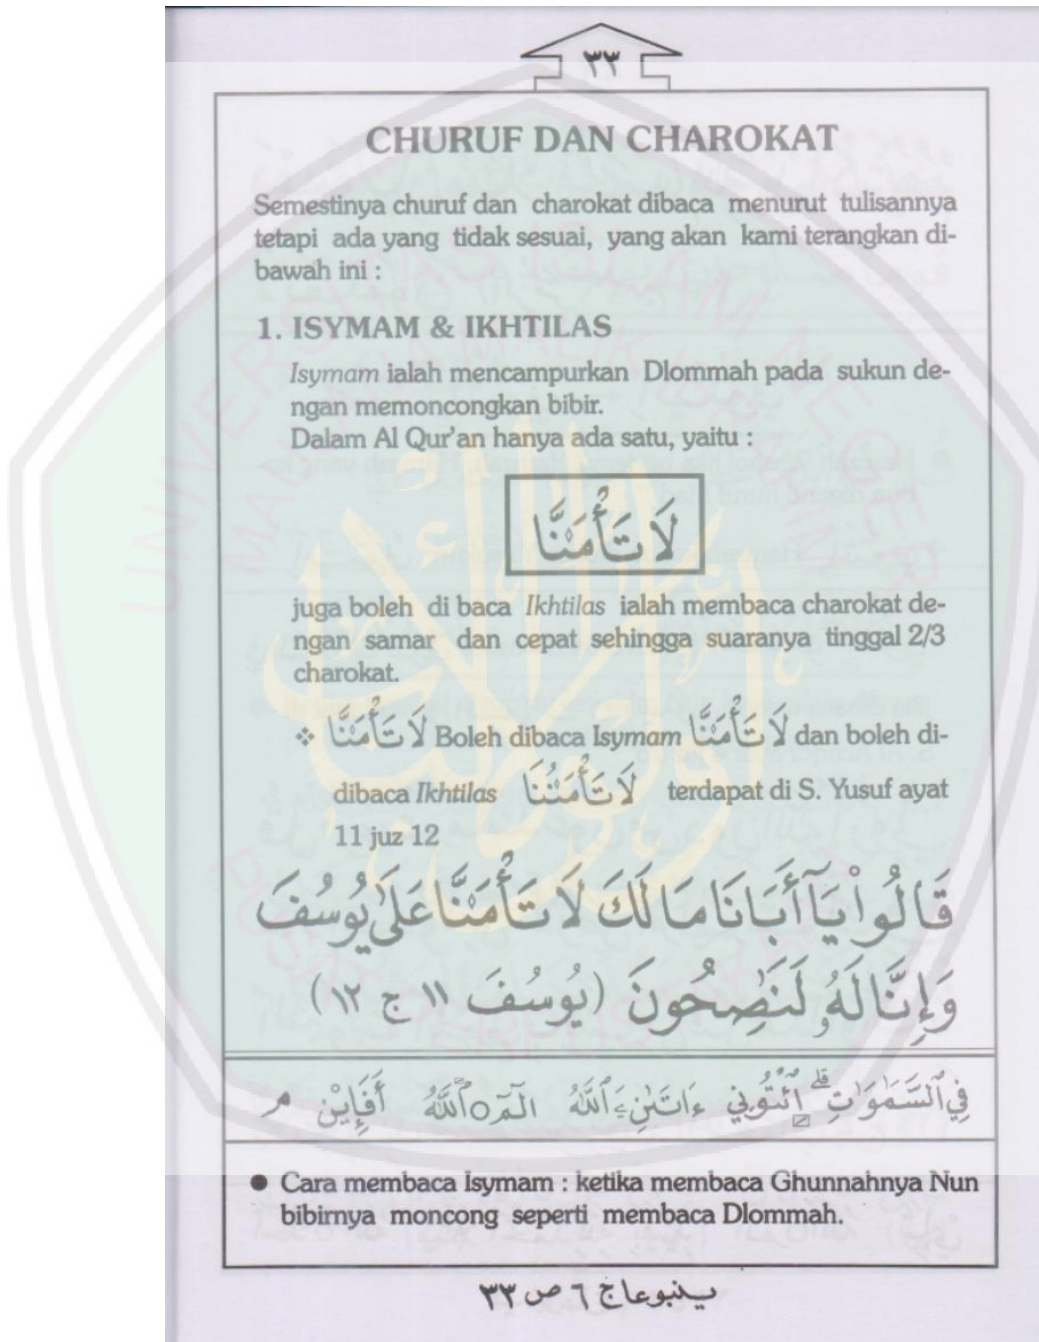 ٣٣
CHURUF DAN CHAROKAT
Semestinya churuf dan charokat dibaca menurut tulisannya
tetapi ada yang tidak sesuai, yang akan kami terangkan di-
bawah ini :
1. ISYMAM & IKHTILAS
Isymam ialah mencampurkan Dlommah pada sukun de-
ngan memoncongkan bibir.
Dalam Al Qur'an hanya ada satu, yaitu :
لَا تَأْمَنَّا
juga boleh di baca Ikhtilas ialah membaca charokat de-
ngan samar dan cepat sehingga suaranya tinggal 2/3
charokat.
❖ لَا تَأْمَنَّا Boleh dibaca Isymam لَا تَأْمَنَّا dan boleh di-
dibaca Ikhtilas لَا تَأْمَنُنَا terdapat di S. Yusuf ayat
11 juz 12
قَالُواْ يَآأَبَانَا مَالَكَ لَا تَأْمَنَّا عَلَىٰ يُوسُفَ
وَإِنَّا لَهُۥ لَنَٰصِحُونَ (يُوسُفَ ١١ ج ١٢)
فِي ٱلسَّمَٰوَٰتِ ۖ ٱئْتُونِي ءَاتَىٰنِۦَ ٱللَّهُ الٓمٓ ٱللَّهُ أَفَإِيْن
● Cara membaca Isymam : ketika membaca Ghunnahnya Nun
bibirnya moncong seperti membaca Dlommah.
ينبوعا ج ٦ ص ٣٣
UNIVERSITAS ISLAM NEGERI
MAULANA MALIK IBRAHIM